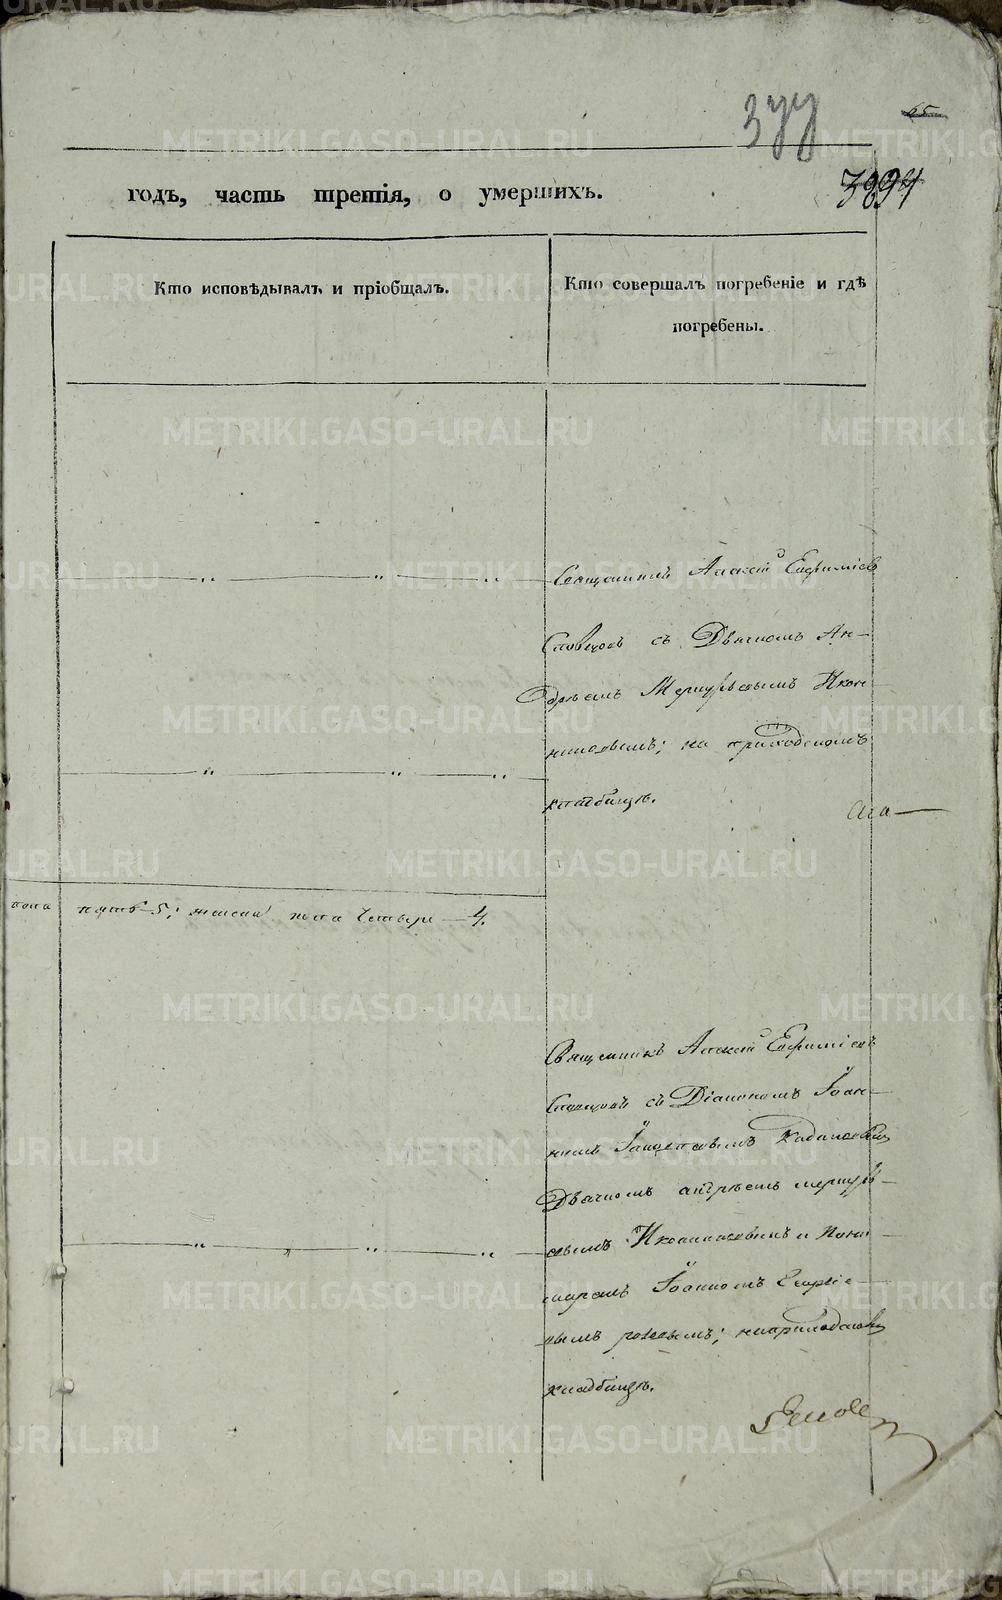 377
65
3894
годъ, часть третія, о умершихъ.
Кто исповѣдывалъ и пріобщалъ.
Кто совершалъ погребеніе и гдѣ
погребены.
Священникъ Алексій Евфиміевъ
Словцовъ съ Дьячкомъ Ан-
дреемъ Меркурьевымъ Икон-
никовымъ; на приходскомъ
кладбищѣ.
пола пять 5; женска пола четыре 4.
Священникъ Алексій Евфиміевъ
Словцовъ съ Діакономъ Іоан-
номъ
Дьячкомъ андреемъ меркурь-
евымъ Иконниковымъ и Поно-
маремъ Іоанномъ
на приходскомъ
кладбищѣ.
METRIKI.GASO-URAL.RU